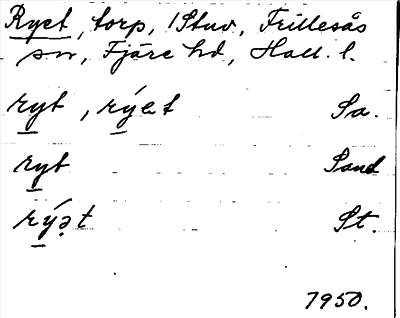 Ryet, torp, 1 Stuv, Frillesås
sn, Fjäre hd, Hall. l.
ryt, rýet Sa.
ryt Sand
rýət St.
1950.